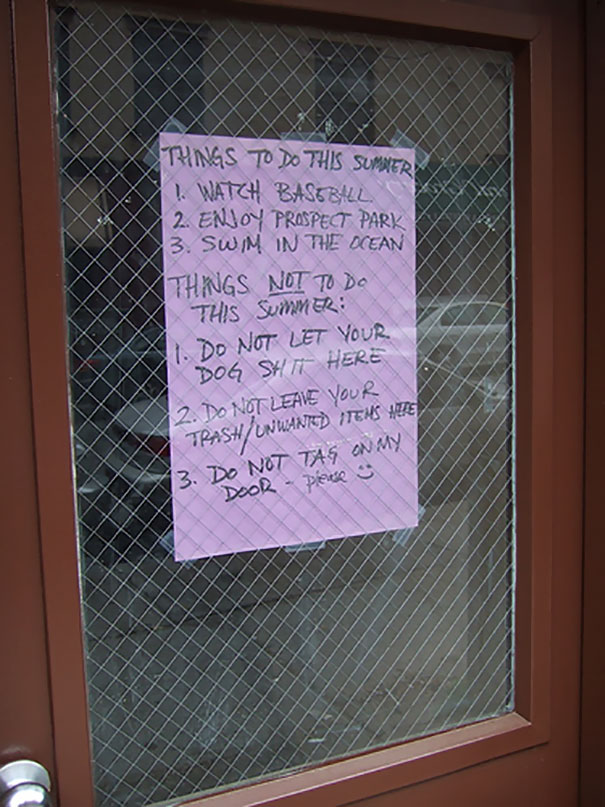 THINGS TO DO THIS SUMMER
1. WATCH BASEBALL
2. ENJOY PROSPECT PARK
3. SWIM IN THE OCEAN
THINGS NOT TO DO
THIS SUMMER:
1. DO NOT LET YOUR
DOG SHIT HERE
2. DO NOT LEAVE YOUR
TRASH/UNWANTED ITEMS HERE
3. DO NOT TAG ON MY
DOOR - please